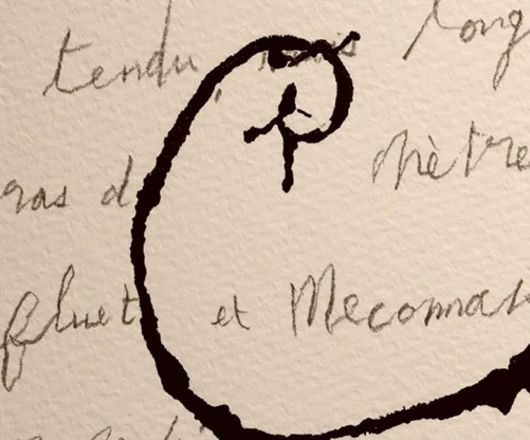 tendu, mais long
ras d mètre
fluet et Meconnais